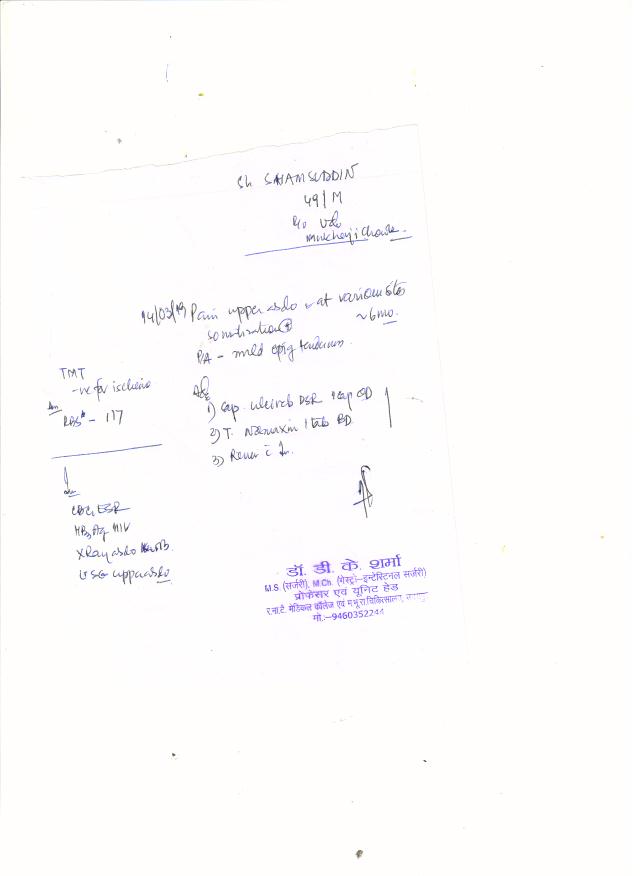 Sh SHAMSUDDIN
49/M
R/o Udr
Mukherji Chowk.
14/03/19 Pain upper abdo at various sites
~6mo.
P/A - mild epig tenderness.
TMT
-ve for ischemia
RBS - 117
Adv
1) Cap DSR 1 cap OD
2) T. 1 tab BD
3) Review
CBC, ESR
HBsAg HIV
XRay abdo
USG upper abdo
डॉ. डी. के. शर्मा
M.S. (सर्जरी), M.Ch. (गेस्ट्रो-इन्टेस्टिनल सर्जरी)
प्रोफेसर एवं यूनिट हेड
र.ना.टै. मेडिकल कॉलेज एवं म.भू.रा.चिकित्सालय,
मो.:-9460352244